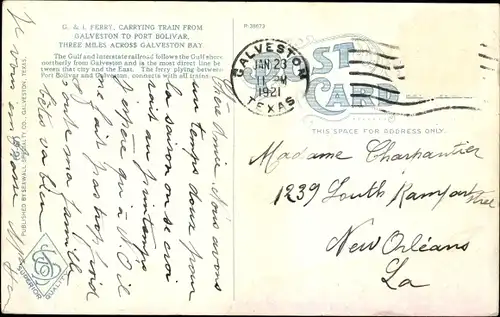 G. & I. FERRY, CARRYING TRAIN FROM
GALVESTON TO PORT BOLIVAR,
THREE MILES ACROSS GALVESTON BAY.
The Gulf and Interstate railroad follows the Gulf shore
northerly from Galveston and is the most direct line be-
tween that city and the East. The ferry plying between
Port Bolivar and Galveston, connects with all trains.
P-39673
GALVESTON
JAN 23
11 M
1921
TEXAS
POST
CARD
THIS SPACE FOR ADDRESS ONLY.
Madame Charpantier
1239 South Rampart
street
New Orléans
La
Chère Amie Nous avons
un temps doux pour
la saison on se croi
rait au printemps
J'espère qui à N. O il
ne fait pas trop froid
toute ma famille
va bien
Je vous
PUBLISHED BY SEAWALL SPECIALTY CO., GALVESTON, TEXAS.
SUPERIOR
QUALITY